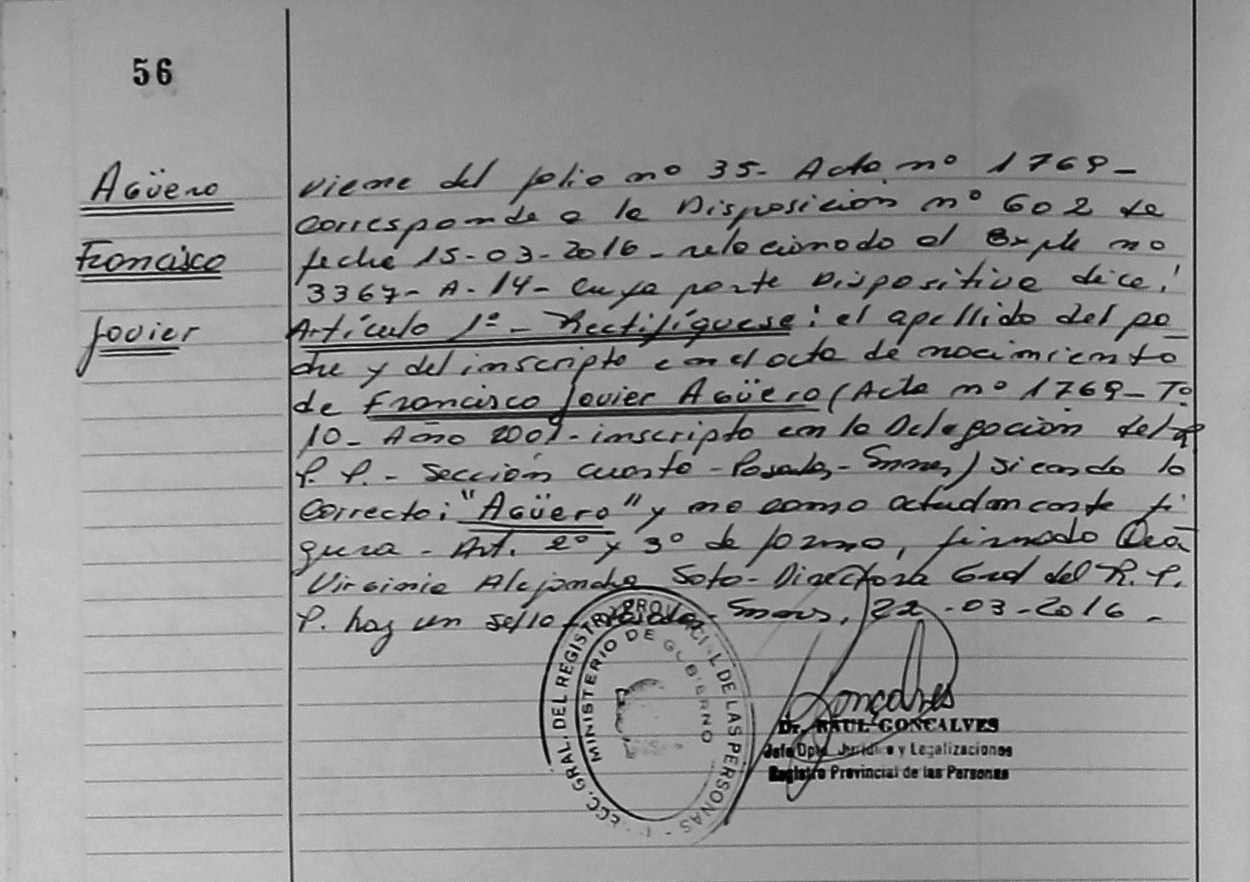 56
Agüero
Francisco
Javier
viene del folio nº 35- Acta nº 1769-
corresponde a la Disposición nº 602 de
fecha 15-03-2016- relacionado al Expte nº
3367- A-14- cuya parte Dispositiva dice:
Artículo 1º- Rectifíquese: el apellido del pa-
dre y del inscripto en el acta de nacimiento
de Francisco Javier Agüero (Acta nº 1769- Tº
10- Año 2001- inscripto en la Delegación del R.
P. P. - Sección Cuarta - Posadas - Mnes) siendo lo
correcto: "Agüero" y no como actualmente fi-
gura - Art. 2º y 3º de forma, firmado Dra
Virginia Alejandra Soto- Directora Gral del R. P.
P. hay un sello Posadas- Mnes, 22-03-2016-
GRAL. DEL REGISTRO PROVINCIAL DE LAS PERSONAS
MINISTERIO DE GOBIERNO
Gonçalves
Dr. RAUL GONCALVES
Jefe Dpto. Jurídico y Legalizaciones
Registro Provincial de las Personas